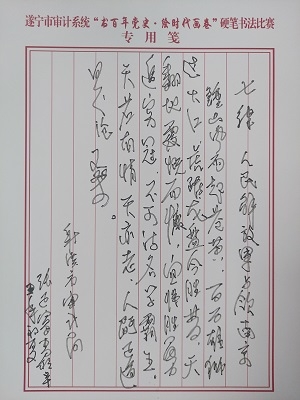 遂宁市审计系统“书百年党史·绘时代画卷”硬笔书法比赛
专用笺
七律 人民解放军占领南京
钟山风雨起苍黄 百万雄师
过大江 虎踞龙盘今胜昔 天
翻地覆慨而慷 宜将剩勇
追穷寇 不可沽名学霸王
天若有情天亦老 人间正道
是沧桑
射洪市审计局